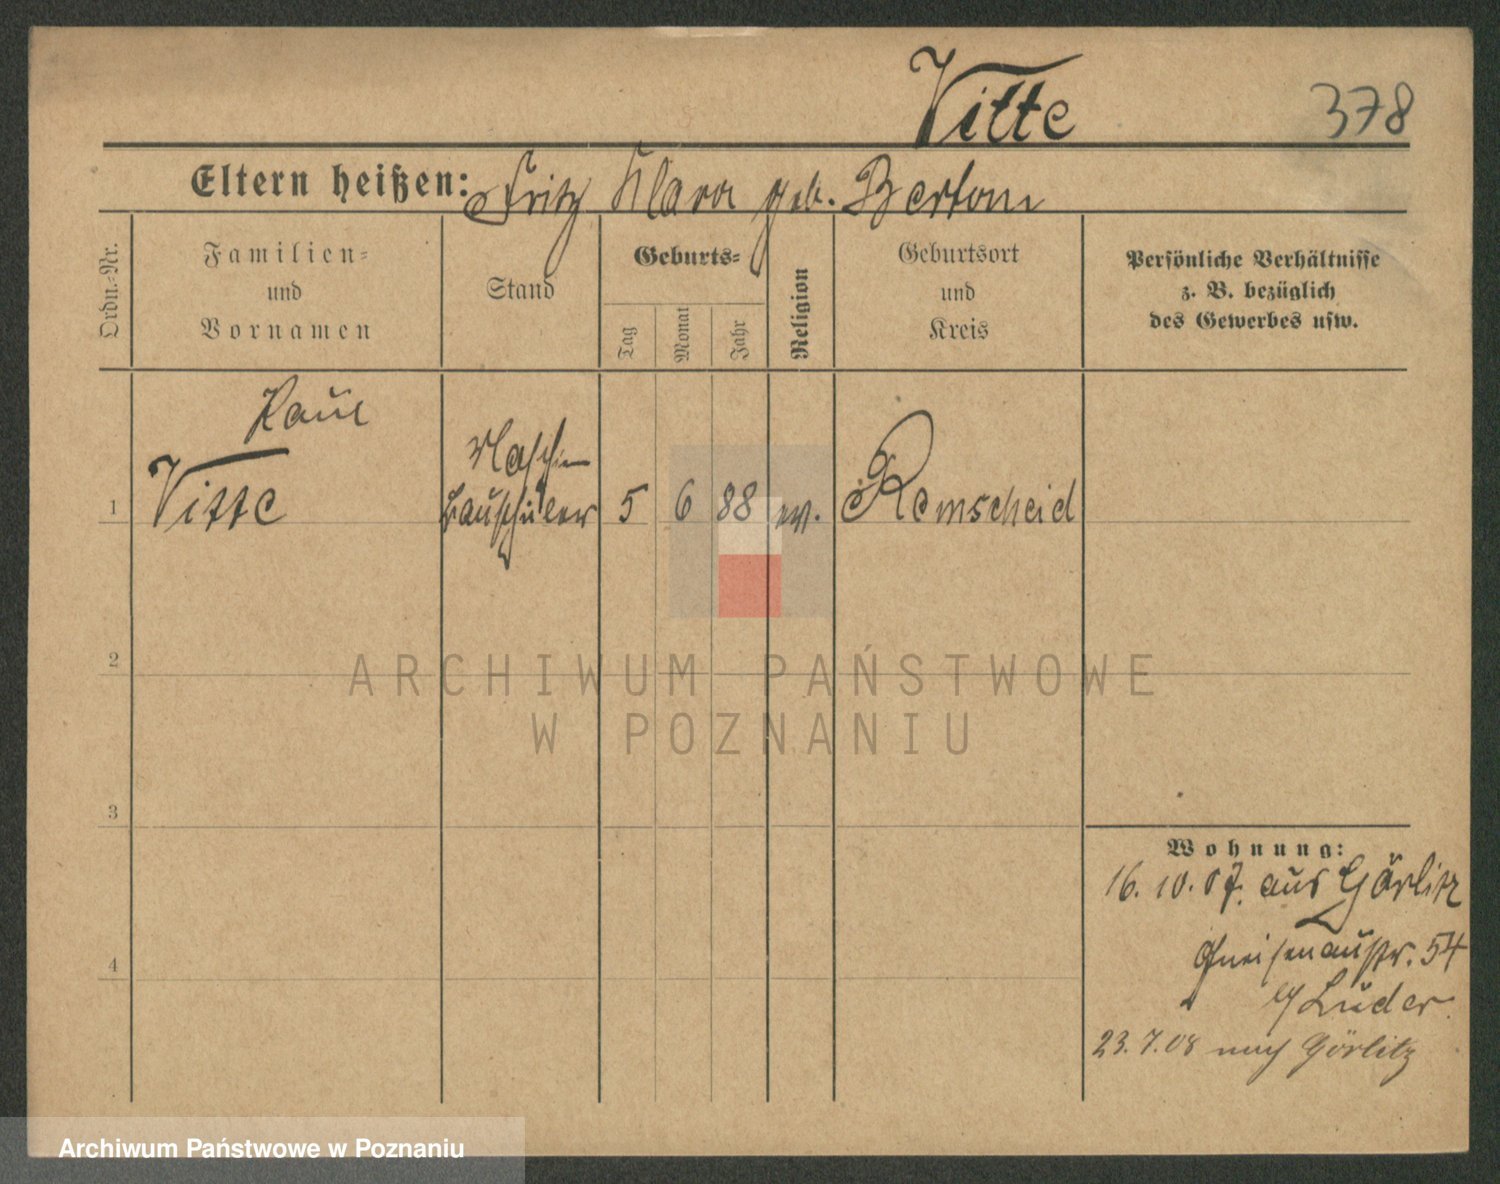 Vitte
378
Eltern heißen: Fritz Klara geb. Bertom
Ordn.-Nr.
Familien-
und
Vornamen
Stand
Geburts-
Tag
Monat
Jahr
Religion
Geburtsort
und
Kreis
Persönliche Verhältnisse
z. B. bezüglich
des Gewerbes usw.
Paul
Maschin
1 Vitte bauschüler 5 6 88 ev. Remscheid
2
ARCHIWUM PAŃSTWOWE
W POZNANIU
3
Wohnung:
16. 10. 07. aus Görlitz
Gneisenaustr. 54
4
b/ Lüder.
23. 7. 08 nach Görlitz
Archiwum Państwowe w Poznaniu